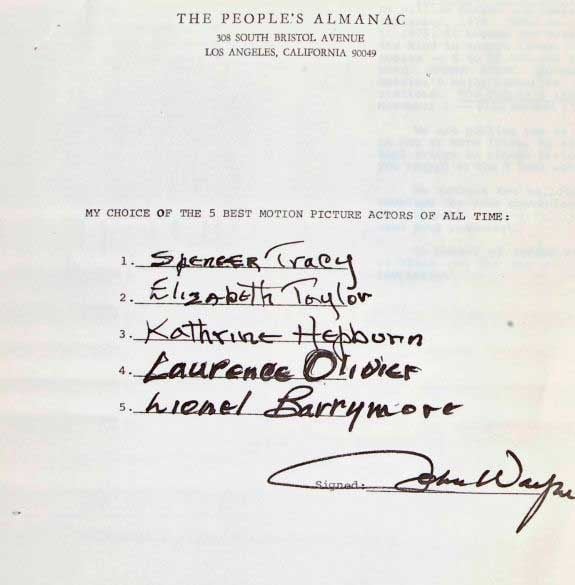 THE PEOPLE'S ALMANAC
308 SOUTH BRISTOL AVENUE
LOS ANGELES, CALIFORNIA 90049
MY CHOICE OF THE 5 BEST MOTION PICTURE ACTORS OF ALL TIME:
1. Spencer Tracy
2. Elizabeth Taylor
3. Kathrine Hepburn
4. Laurence Olivier
5. Lionel Barrymore
Signed: John Wayne